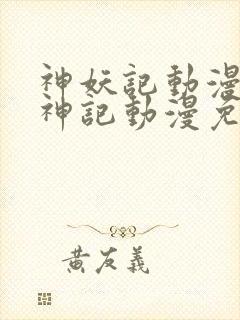 神妖記動漫
神記動漫免
黃友義